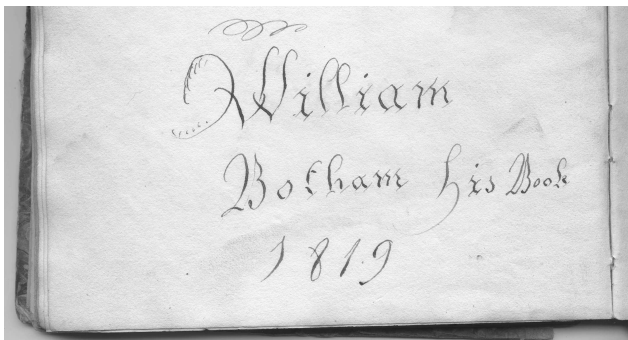 William
Botham his Book
1819